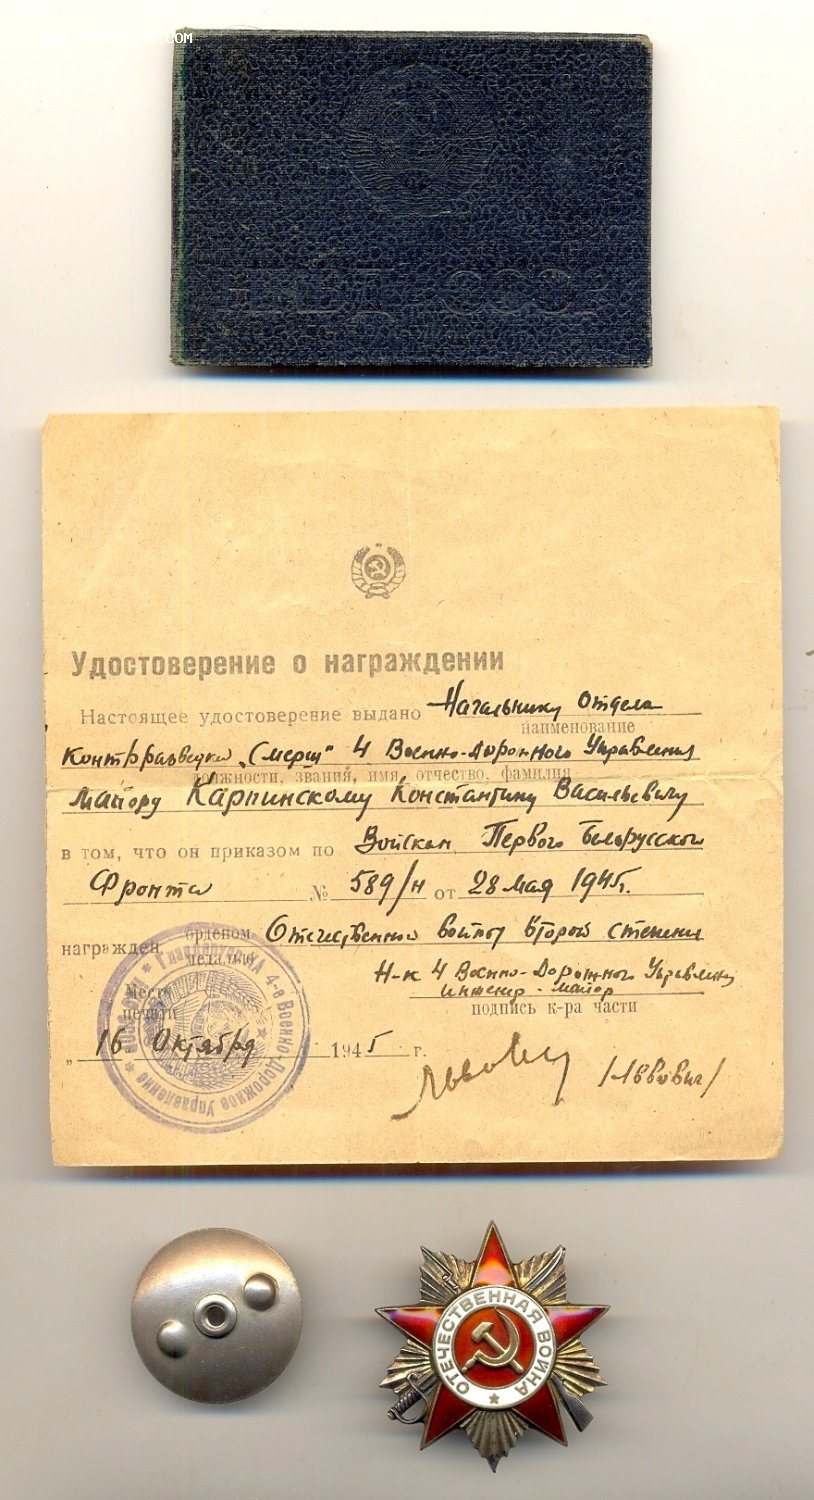 НКВД СССР
Удостоверение о награждении
Настоящее удостоверение выдано Начальнику Отдела
наименование
Контрразведки „Смерш" 4 Военно-Дорожного Управления
должности, звания, имя, отчество, фамилия
майору Карпинскому Константину Васильевичу
в том, что он приказом по Войскам Первого Белорусского
Фронта № 589/н от 28 мая 1945г.
награжден орденом Отечественной войны второй степени
медалью
Н-к 4 Военно-Дорожного Управления
инженер-майор
Место
печати
подпись к-ра части
„16 Октября 1945 г.
/Львович/
4-е Военно-Дорожное Управление
ОТЕЧЕСТВЕННАЯ ВОЙНА